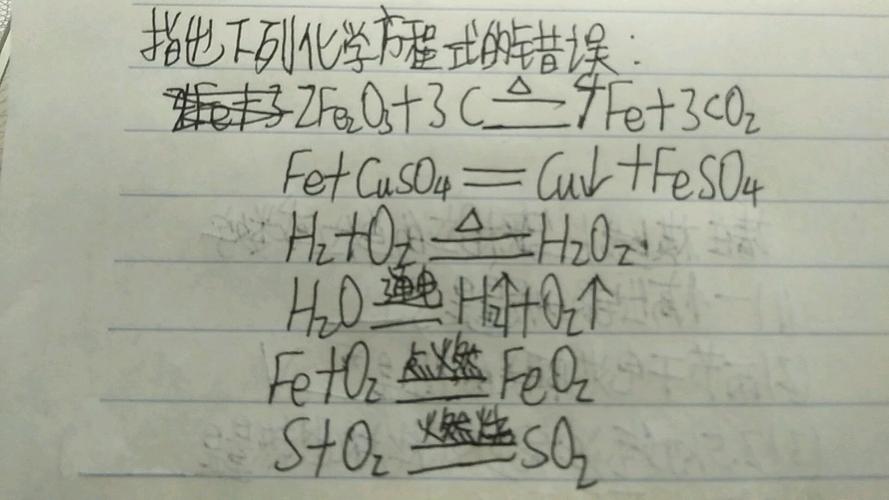 指出下列化学方程式的错误:
2Fe₂O₃+3C ≜ 4Fe+3CO₂
Fe+CuSO₄=Cu↓+FeSO₄
H₂+O₂ ≜ H₂O₂.
H₂O 通电= H₂↑+O₂↑
Fe+O₂ 点燃= FeO₂
S+O₂ 燃烧= SO₂